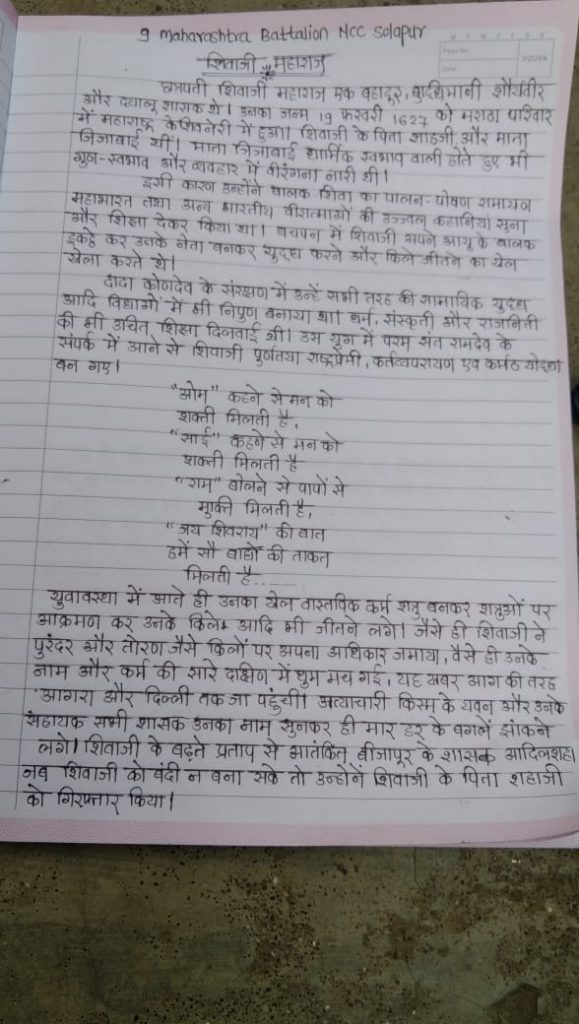 9 Maharashtra Battalion Ncc Solapur
Page No.
Date
YOUVA
शिवाजी महाराज
छत्रपती शिवाजी महाराज एक बहादूर, बुद्धिमानी शौर्यवीर
और दयालु शासक थे। उनका जन्म 19 फरवरी 1627 को मराठा परिवार
में महाराष्ट्र के शिवनेरी में हुआ। शिवाजी के पिता शाहजी, और माता
जिजाबाई थीं। माता जिजाबाई धार्मिक स्वभाव वाली होते हुए भी
गुण-स्वभाव और व्यवहार में वीरंगना नारी थी।
इसी कारण उन्होंने बालक शिवा का पालन-पोषण रामायण
महाभारत तथा अन्य भारतीय वीरात्माओं की उज्वल कहानियां सुना
और शिक्षा देकर किया था। बचपन में शिवाजी अपने आयु के बालक
इकट्ठे कर उनके नेता बनकर युद्ध करने और किले जीतने का खेल
खेला करते थे।
दादा कोणदेव के संरक्षण में उन्हें सभी तरह की सामायिक युद्ध
आदि विद्याओं में भी निपुण बनाया था। धर्म, संस्कृती और राजनिती
की भी उचित शिक्षा दिलवाई थी। उस युग में परम संत रामदेव के
संपर्क में आने से शिवाजी पुर्णतया राष्ट्रप्रेमी, कर्तव्यपरायण एवं कर्मठ योद्धा
बन गए।
"ओम" कहने से मन को
शक्ती मिलती है,
"साई" कहने से मन को
शक्ती मिलती है
"राम" बोलने से पापों से
मुक्ति मिलती है,
"जय शिवराय" की बात
हमें सौ बाहों की ताकत
मिलती है......
युवावस्था में आते ही उनका खेल वास्तविक कर्म शत्रु बनकर शत्रुओं पर
आक्रमण कर उनके किले आदि भी जीतने लगे। जैसे ही शिवाजी ने
पुरंदर और तोरण जैसे किलों पर अपना अधिकार जमाया, वैसे ही उनके
नाम और कर्म की सारे दक्षिण में धुम मच गई, यह खबर आग की तरह
आगरा और दिल्ली तक जा पहुंची। अत्याचारी किस्म के यवन और उनके
सहायक सभी शासक उनका नाम सुनकर ही मार डर के बगलें झांकने
लगे। शिवाजी के बढ़ते प्रताप से आतंकित बीजापूर के शासक आदिलशहा
जब शिवाजी को बंदी न बना सके तो उन्होनें शिवाजी के पिता शहाजी
को गिरफ्तार किया।